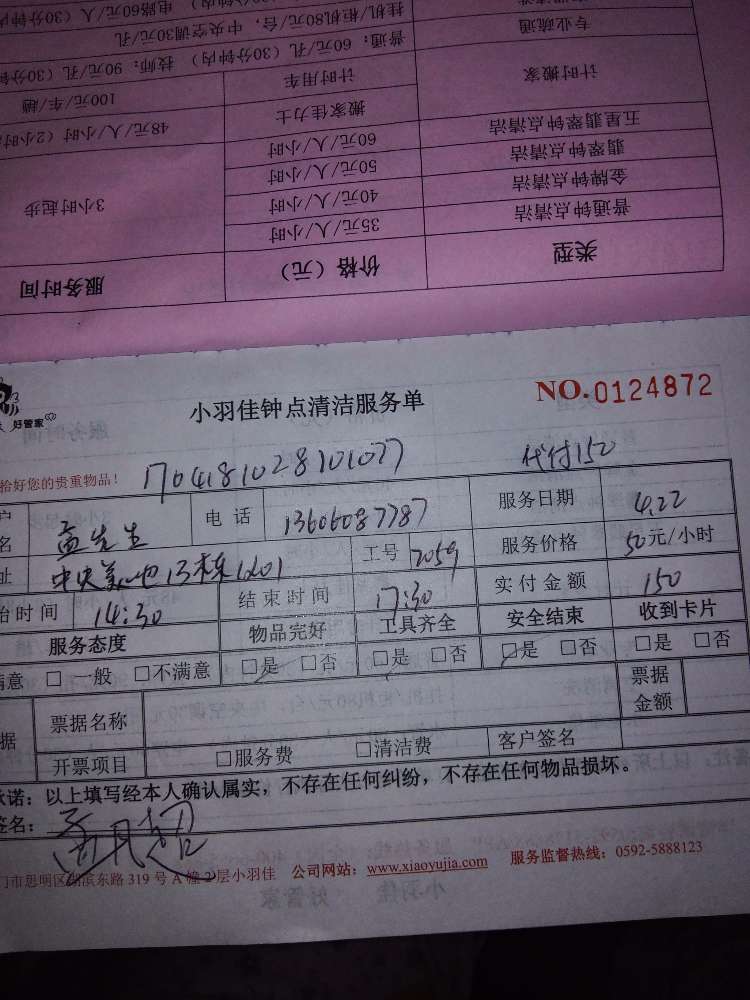 挂机/柜机80元/台，中央空调30元/孔
普通：60元/孔（30分钟内） 技师：90元/孔（30分钟
专业疏通
计时搬家
计时用车
100元/车/趟
搬家佳力士
48元/人/小时（2小时
五星翡翠钟点清洁
60元/人/小时
翡翠钟点清洁
50元/人/小时
金牌钟点清洁
40元/人/小时
3小时起步
普通钟点清洁
35元/人/小时
类型
价格（元）
服务时间
好管家
小羽佳钟点清洁服务单
NO.0124872
拾好您的贵重物品！
1704181028101077
代付150
户
名
孟先生
电 话
13606087787
服务日期
4.22
址
中央美地13栋1201
工号
2059
服务价格
50元/小时
始时间
14:30
结束时间
17:30
实付金额
150
服务态度
物品完好
工具齐全
安全结束
收到卡片
满意 □ 一般 □不满意
□是 □否
□是 □否
□是 □否
□是 □否
据
票据名称
票据
金额
开票项目
□服务费 □清洁费
客户签名
承诺：以上填写经本人确认属实，不存在任何纠纷，不存在任何物品损坏。
签名：
门市思明区湖滨东路 319 号 A 幢 2 层小羽佳 公司网站：www.xiaoyujia.com 服务监督热线：0592-5888123